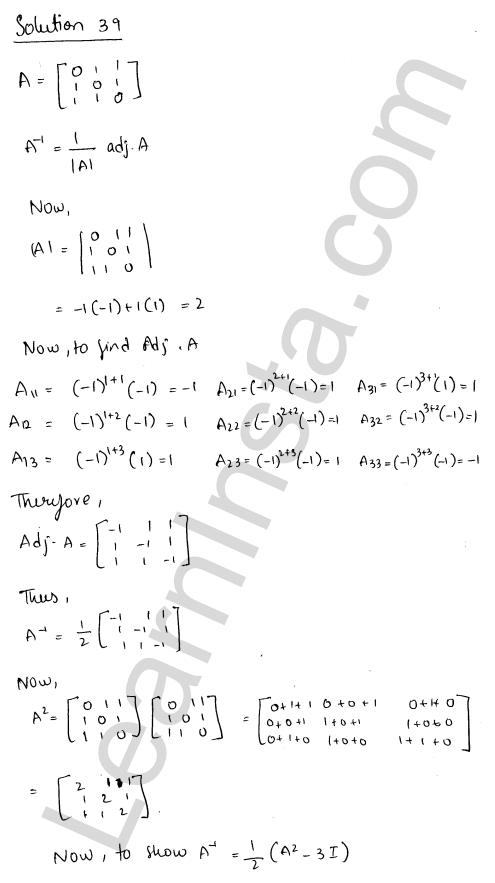 Solution 39
A = [0 1 1
1 0 1
1 1 0]
A⁻¹ = 1/|A| adj. A
Now,
|A| = |0 1 1
1 0 1
1 1 0|
= -1(-1)+1(1) = 2
Now, to find Adj. A
A11 = (-1)^1+1 (-1) = -1 A21 = (-1)^2+1 (-1) = 1 A31 = (-1)^3+1 (1) = 1
A12 = (-1)^1+2 (-1) = 1 A22 = (-1)^2+2 (-1) = -1 A32 = (-1)^3+2 (-1) = 1
A13 = (-1)^1+3 (1) = 1 A23 = (-1)^2+3 (-1) = 1 A33 = (-1)^3+3 (-1) = -1
Therfore,
Adj. A = [-1 1 1
1 -1 1
1 1 -1]
Thus,
A⁻¹ = 1/2 [-1 1 1
1 -1 1
1 1 -1]
Now,
A² = [0 1 1 [0 1 1 = [0+1+1 0+0+1 0+1+0
1 0 1 1 0 1 0+0+1 1+0+1 1+0+0
1 1 0] 1 1 0] 0+1+0 1+0+0 1+1+0]
= [2 1 1
1 2 1
1 1 2].
Now, to show A⁻¹ = 1/2 (A² - 3I)
LearnInsta.com